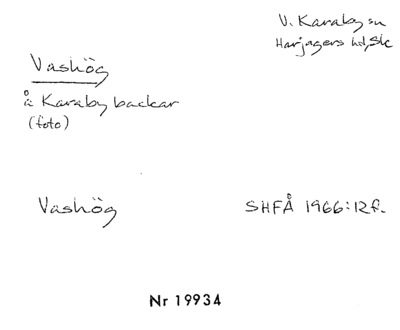 V. Karaby sn
Harjagers hd, Sk
Vashög
å Karaby backar
(foto)
Vashög
SHFÅ 1966:12f.
Nr 19934